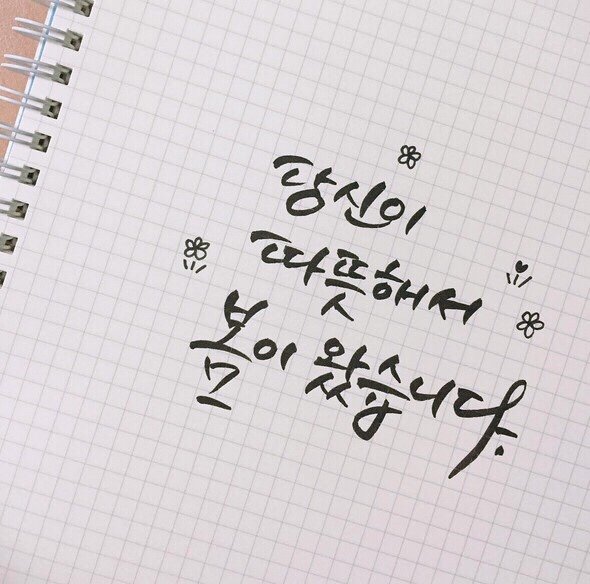 당신이
따뜻해서
봄이 왔습니다.